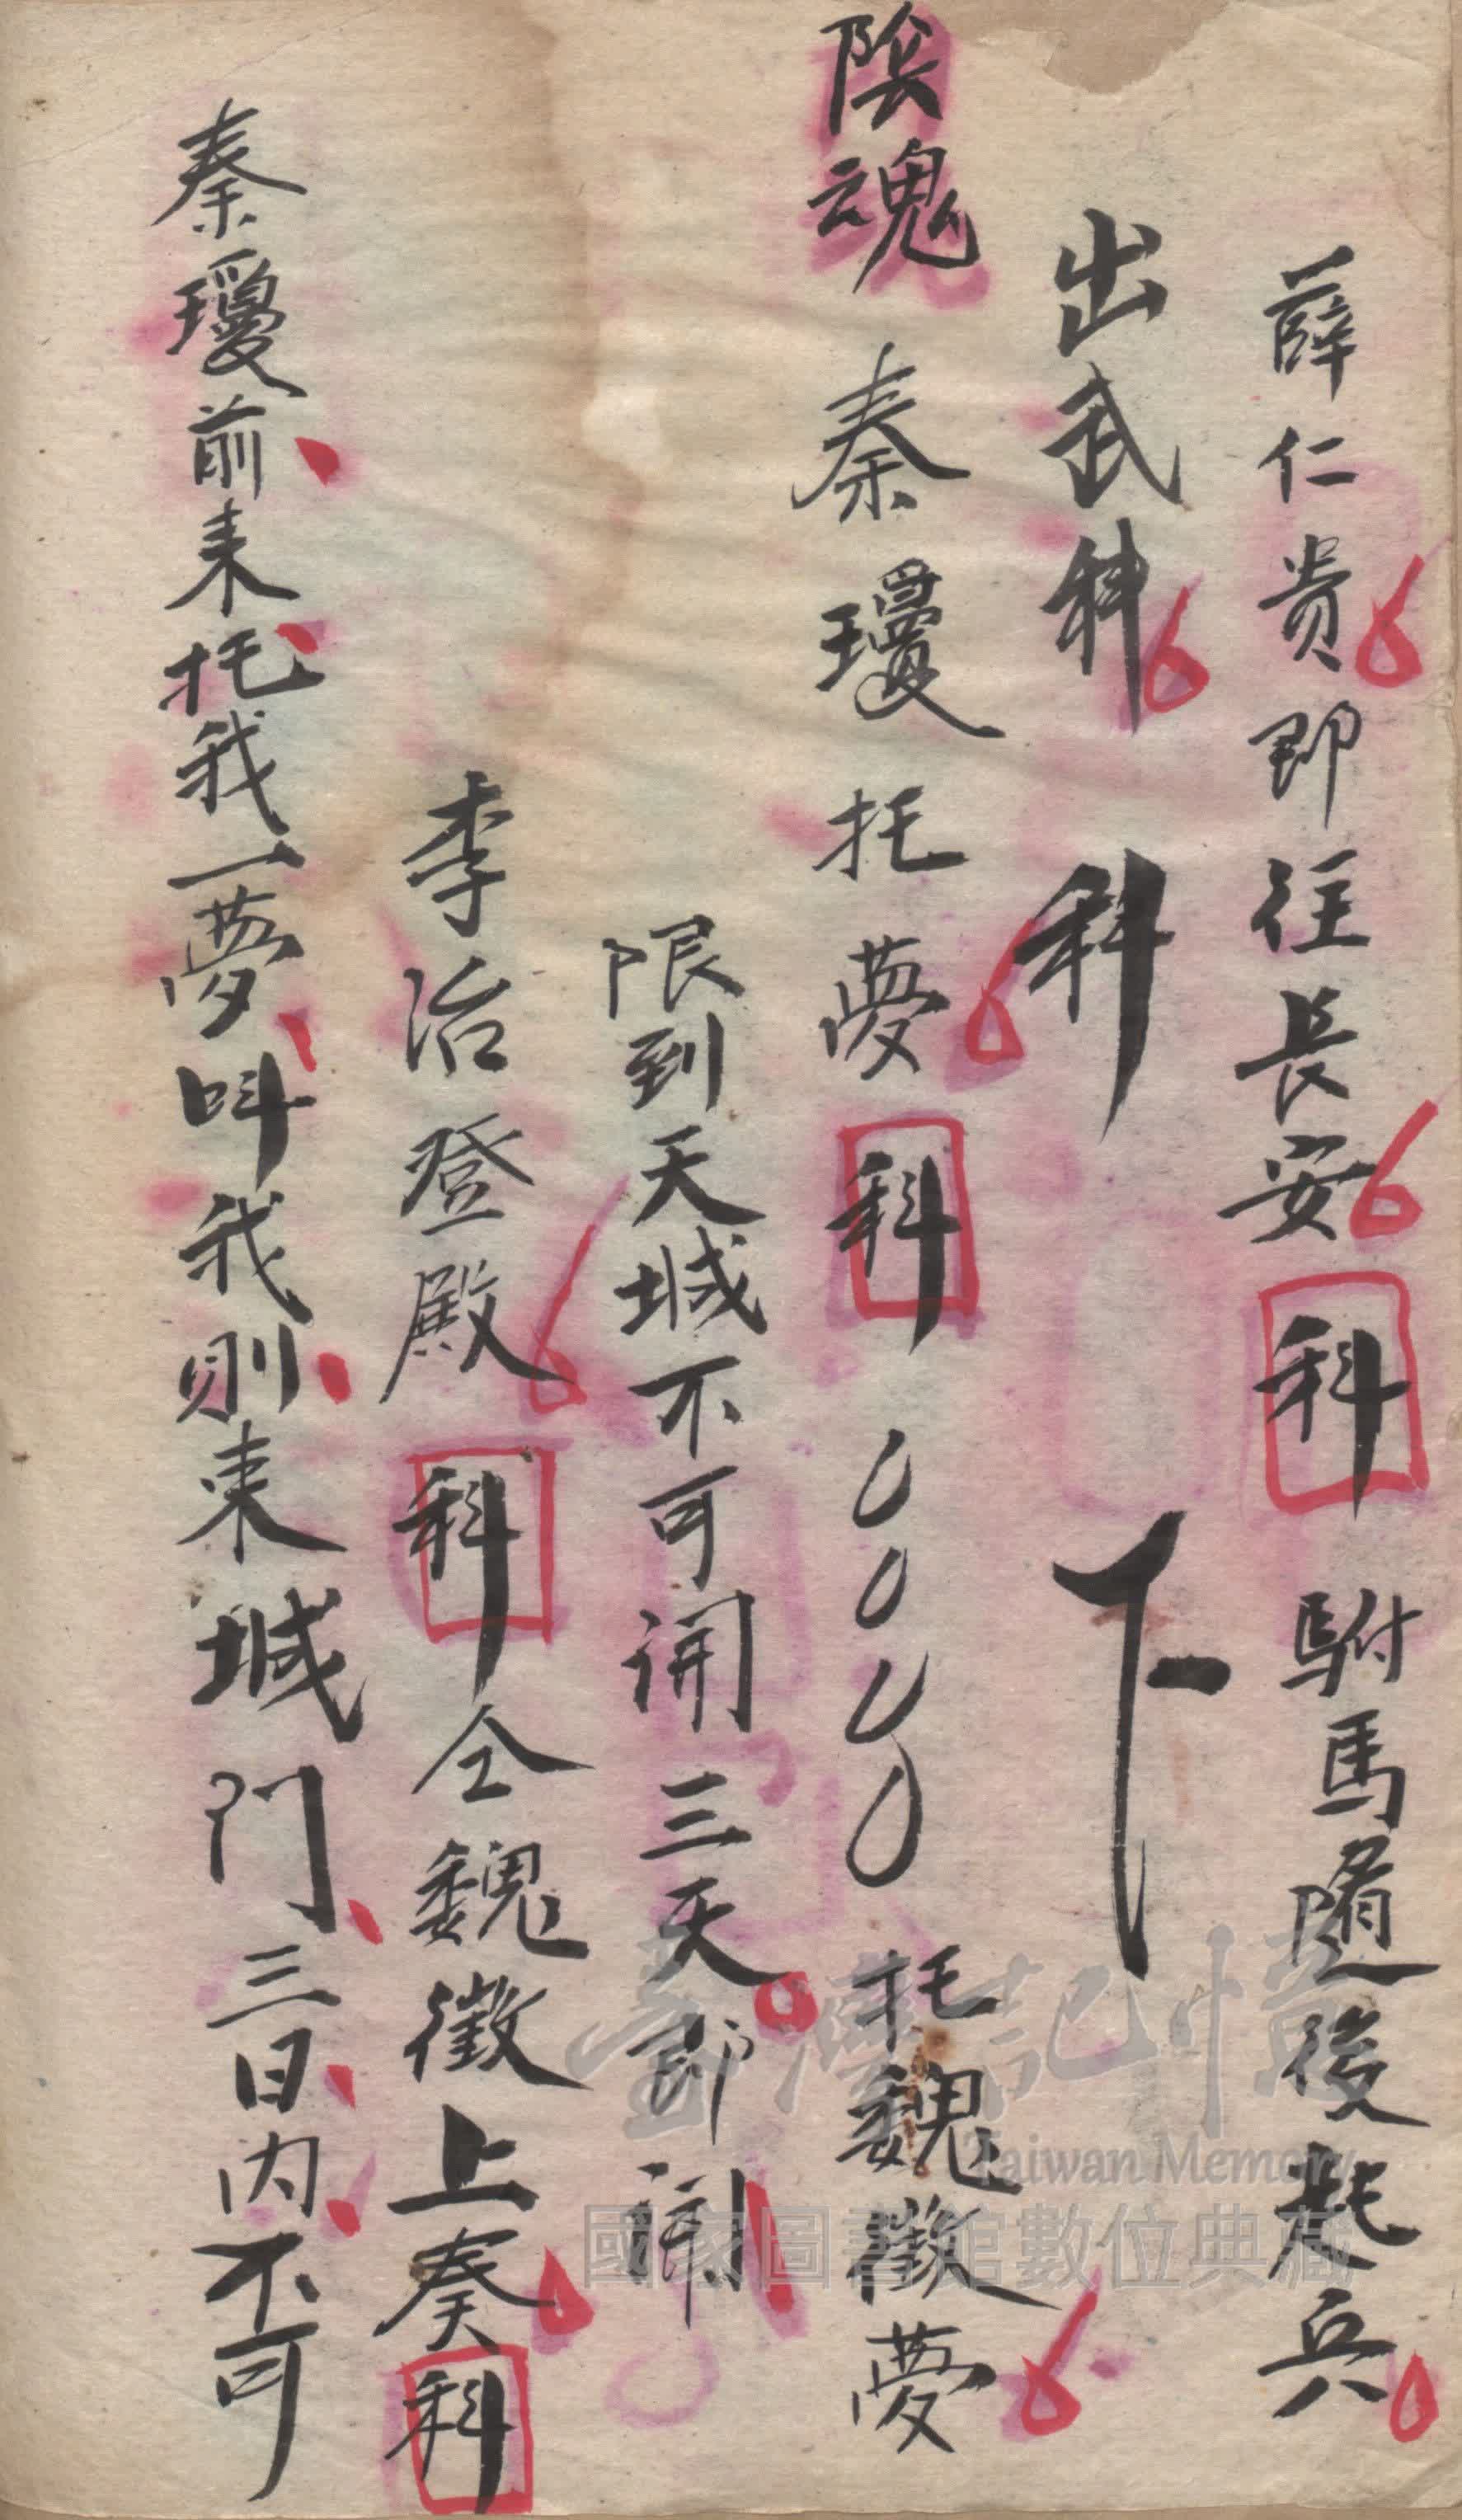 薛仁贵即往長安科駙馬隨後起兵
出武科科下
陰魂秦瓊托夢科托魏徵夢
限到天城不可開三天即開
李治登殿科仝魏徵上奏科
秦瓊前来托我一夢叫我則東城門三日内不可
臺灣記憶
Taiwan Memory
國家圖書館數位典藏